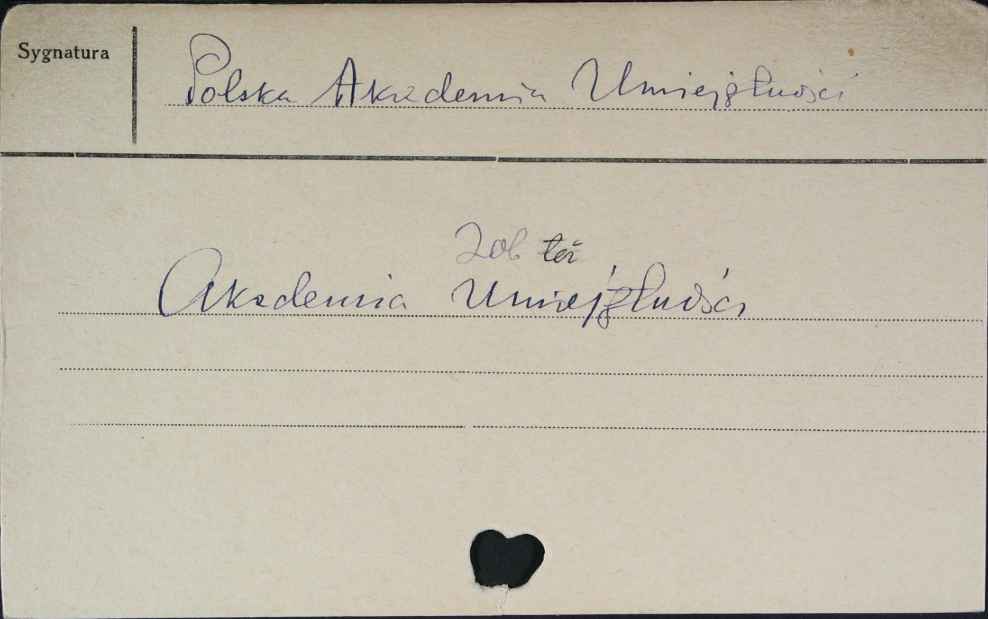 Sygnatura
Polska Akademia Umiejętności
Zob też
Akademia Umiejętności